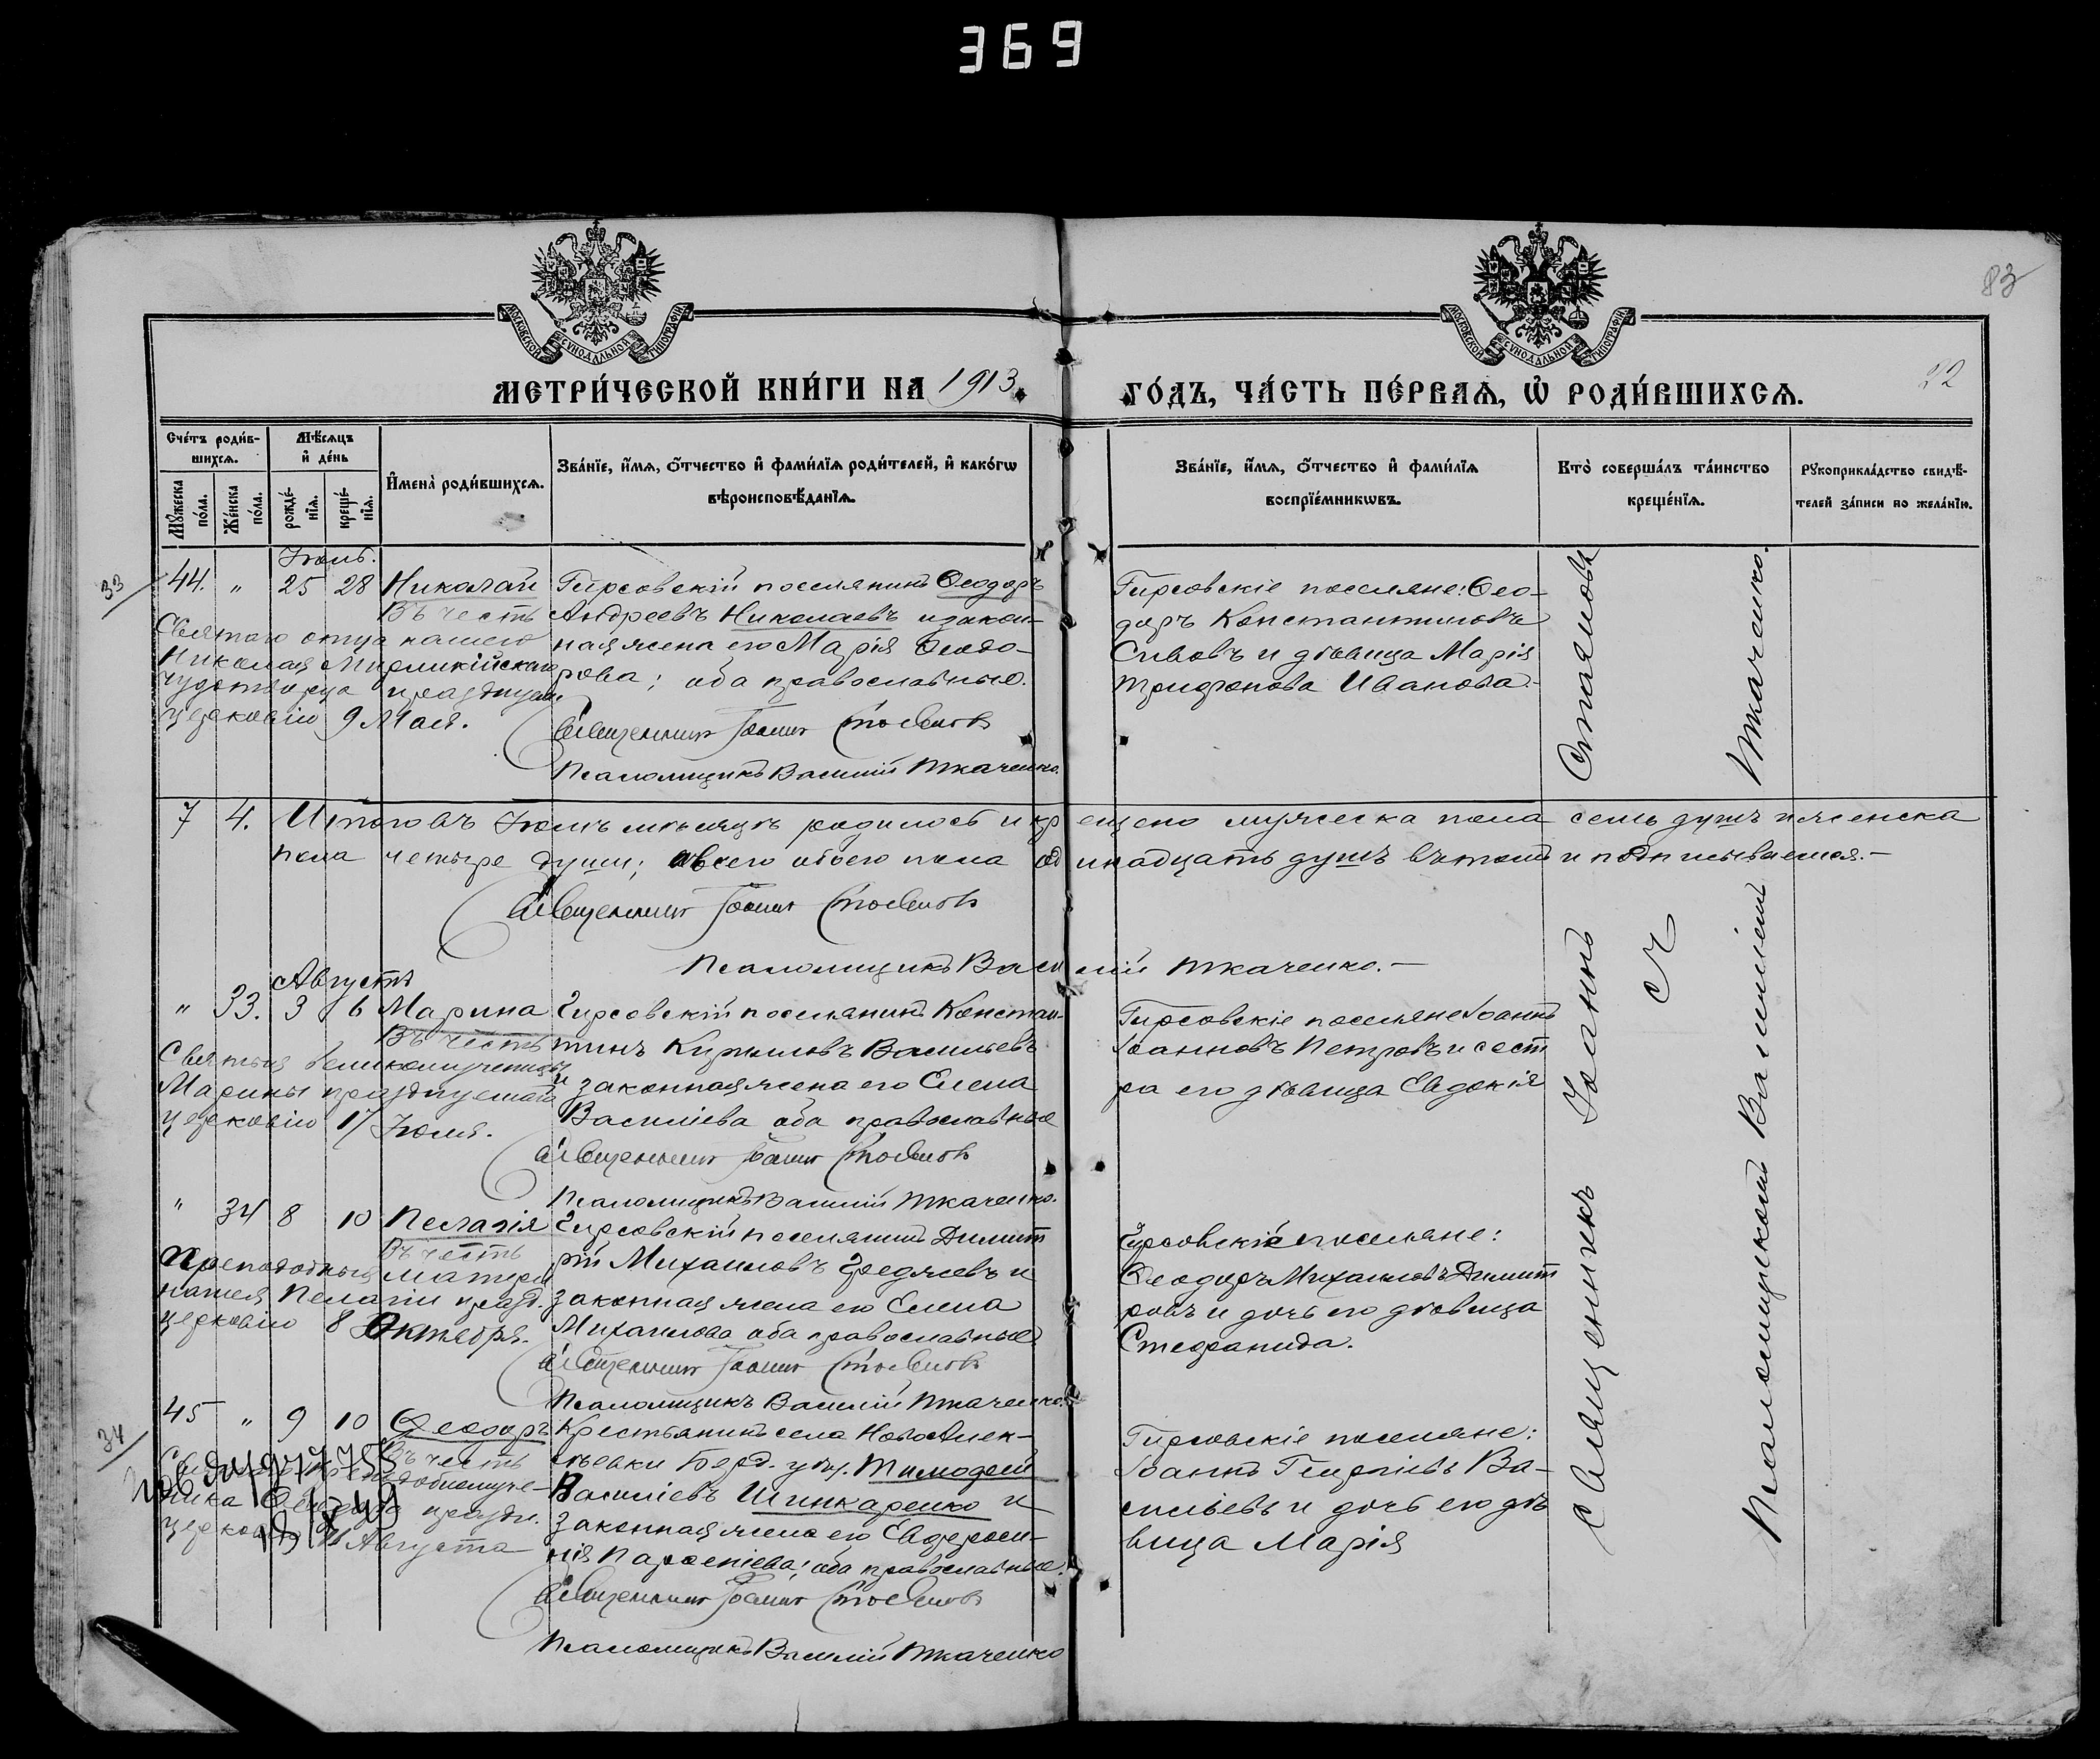 369
83
22
МОСКОВСКОЙ СѴНОДАЛЬНОЙ ТИПОГРАФІИ
МОСКОВСКОЙ СѴНОДАЛЬНОЙ ТИПОГРАФІИ
МЕТРИ́ЧЕСКОЙ КНИ́ГИ НА 1913
ГО́ДЪ, ЧА́СТЬ ПЕ́РВАѦ, Ѡ҆ РОДИ́ВШИХСѦ.
Сче́тъ роди́в-
шихсѧ.
Мꙋ́жеска по́ла.
Же́нска по́ла.
Мѣ́сѧцъ
и҆ де́нь
рожде́-
нїѧ.
креще́-
нїѧ.
И҆мена̀ роди́вшихсѧ.
Зва́нїе, и҆́мѧ, ѻ҆́тчество и҆ фами́лїѧ роди́телей, и҆ како́гѡ
вѣроисповѣ́данїѧ.
Зва́нїе, и҆́мѧ, ѻ҆́тчество и҆ фами́лїѧ
воспрїе́мникѡвъ.
Кто̀ соверша́лъ та́инство
креще́нїѧ.
Рꙋкоприкла́дство свидѣ́-
телей за́писи по жела́нїю.
Іюль.
33
44. " 25 28 Николай
Въ честь
Святаго отца нашего
Николая Мирликійскаго
чудотворца празднуем.
церковію 9 Мая.
Гирсовскій поселянинъ Ѳеодоръ
Андреевъ Николаевъ и закон-
ная жена его Марія Ѳеодо-
рова; оба православные.
Священникъ Іоаннъ Стояновъ
Псаломщикъ Василій Ткаченко.
Гирсовскіе поселяне: Ѳео-
доръ Константиновъ
Сивовъ и дѣвица Марія
Трифонова Иванова.
7 4. Итого въ Іюлѣ мѣсяцѣ родилось и крещено мужеска пола семь душъ и женска
пола четыре души; а всего обоего пола одинадцать душъ въ томъ и подписываемся.—
Священникъ Іоаннъ Стояновъ
Псаломщикъ Василій Ткаченко.—
Августъ
" 33. 3 6 Марина
Въ честь
Святыя великомученицы
Марины празднуемыя
церковію 17 Іюля.
Гирсовскій поселянинъ Констан-
тинъ Кириловъ Васильевъ
и законная жена его Елена
Василіева оба православные
Священникъ Іоаннъ Стояновъ
Псаломщикъ Василій Ткаченко.
Гирсовскіе поселяне Іоаннъ
Іоанновъ Петровъ и сест
ра его дѣвица Евдокія
" 34 8 10 Пелагія
Въ честь
Преподобныя Матери
нашея Пелагіи празд.
церковію 8 Октября.
Гирсовскій поселянинъ Димит
рій Михаиловъ
законная жена его Елена
Михаилова оба православные
Священникъ Іоаннъ Стояновъ
Псаломщикъ Василій Ткаченко.
Гирсовскіе поселяне:
Ѳеодоръ Михаиловъ Димит
ровъ и дочь его дѣвица
Стефанида.
34
45 " 9 10 Ѳеодоръ
Въ честь
церковію
Августа
Крестьянинъ села Новоалек-
сѣевки Берд. уѣз. Тимоѳей
Василіевъ Шинкаренко и
законная жена его Евфроси-
нія Парѳеніева; оба православные.
Священникъ Іоаннъ Стояновъ
Псаломщикъ Василій Ткаченко
Гирсовскіе поселяне:
Іоаннъ Георгіевъ Ва-
сильевъ и дочь его дѣ
вица Марія
Священникъ Іоаннъ Стояновъ
съ
Псаломщикомъ Василіемъ Ткаченко.